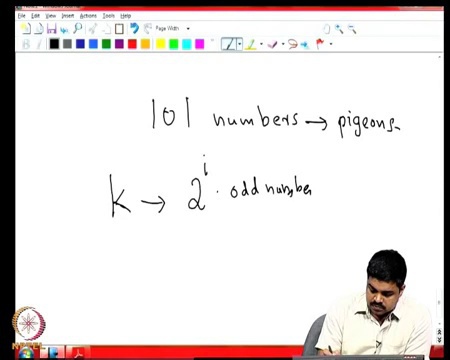 File Edit View Insert Actions Tools Help
Page Width
101 numbers → pigeons.
K → 2^i · odd number